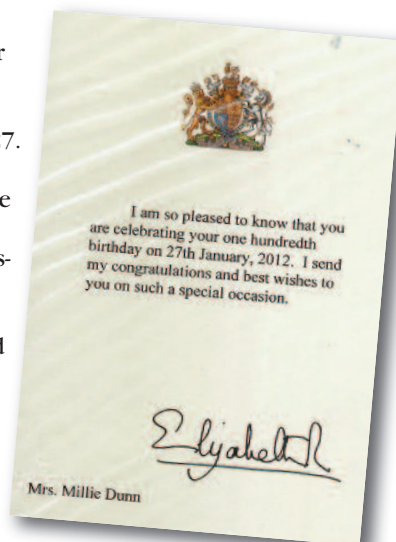 r
7.
e
s-
d
I am so pleased to know that you
are celebrating your one hundredth
birthday on 27th January, 2012. I send
my congratulations and best wishes to
you on such a special occasion.
Elizabeth R
Mrs. Millie Dunn